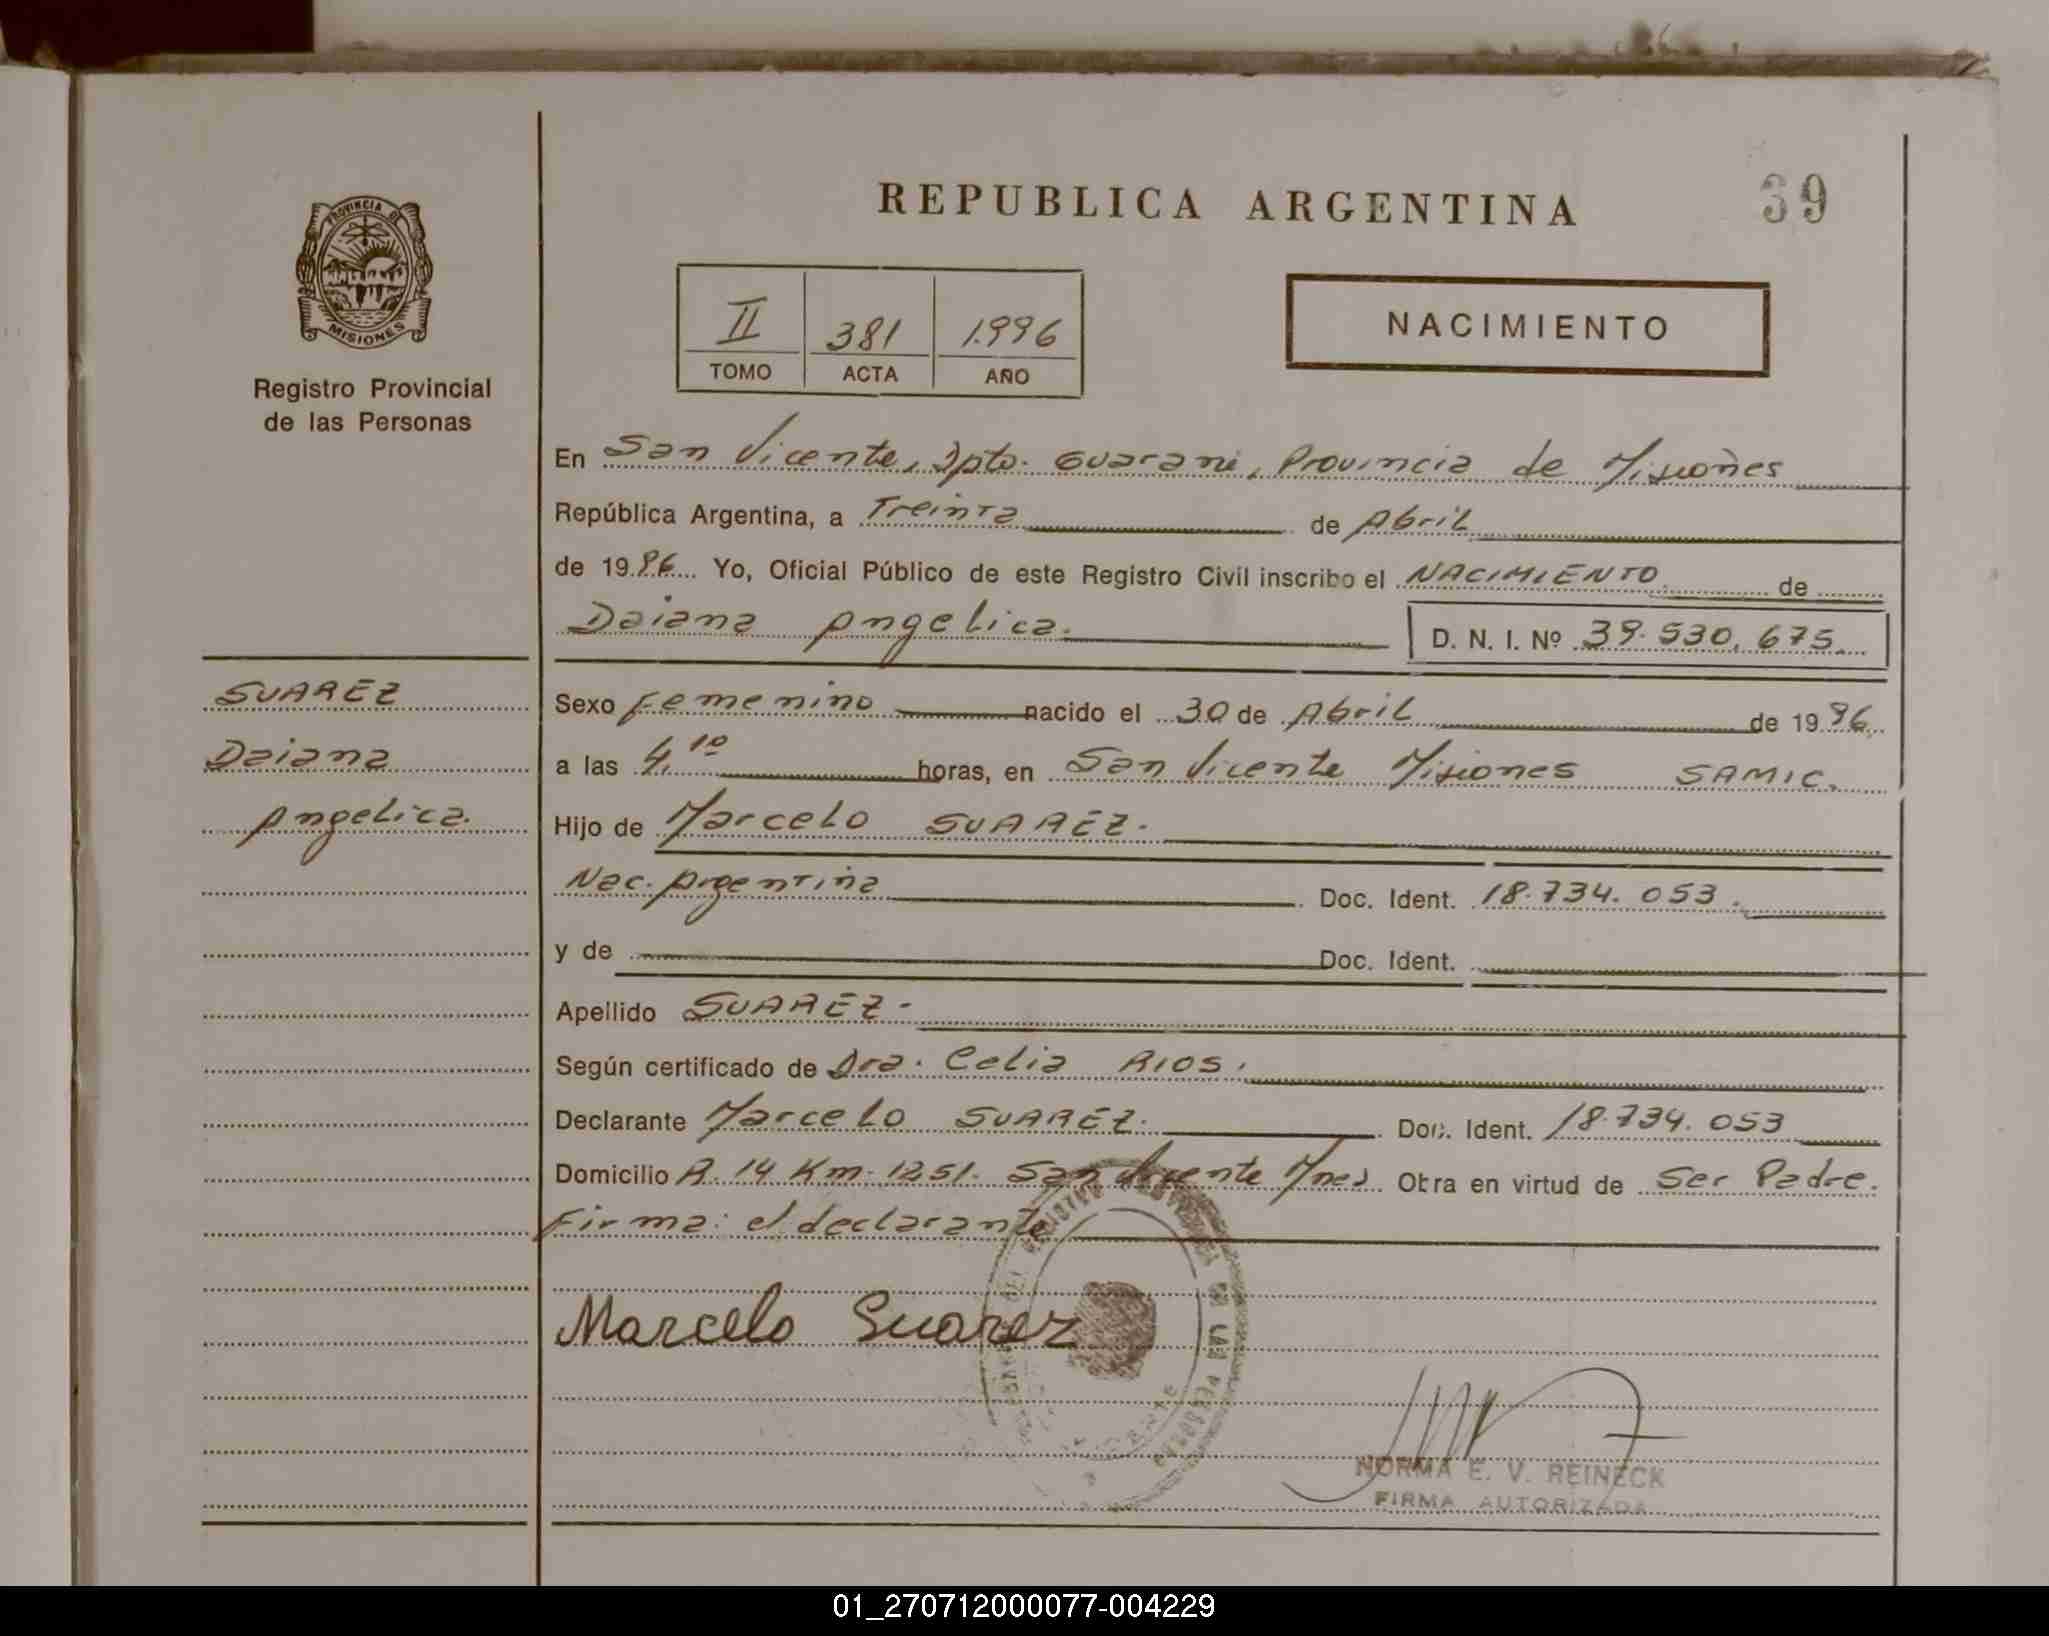 REPUBLICA ARGENTINA
39
PROVINCIA DE
MISIONES
Registro Provincial
de las Personas
II 381 1.996
TOMO ACTA AÑO
NACIMIENTO
En San Vicente, Dpto. Guarani, Provincia de Misiones
República Argentina, a Treinta de Abril
de 1996 Yo, Oficial Público de este Registro Civil inscribo el NACIMIENTO de
Daiana Angelica. D. N. I. Nº 39.530.675
SUAREZ
Daiana
Angelica.
Sexo Femenino nacido el 30 de Abril de 1996
a las 4,10 horas, en San Vicente Misiones SAMIC.
Hijo de Marcelo SUAREZ.
Nac. Argentina Doc. Ident. 18.734.053.
y de Doc. Ident.
Apellido SUAREZ-
Según certificado de Dra. Celia RIOS.
Declarante Marcelo SUAREZ. Doc. Ident. 18.734.053
Domicilio R. 14 Km. 1251. San Vicente Mnes. Obra en virtud de Ser Padre.
Firma: el declarante
Marcelo Suarez
NORMA E. V. REINECK
FIRMA AUTORIZADA
01_270712000077-004229